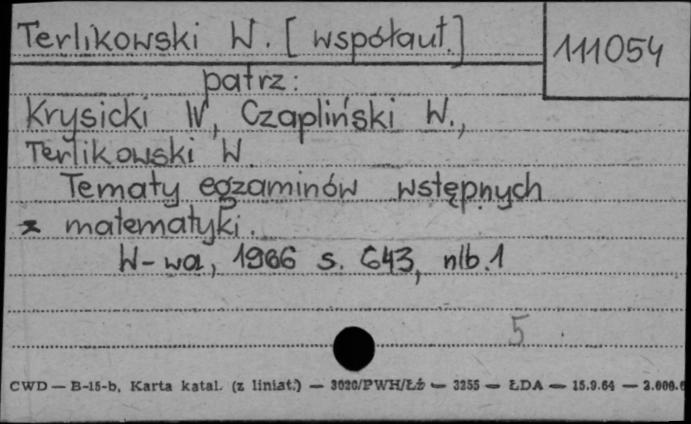 Terlikowski W. [współaut.]
111054
patrz:
Krysicki W, Czapliński W.,
Terlikowski W.
Tematy egzaminów wstępnych
z matematyki.
W-wa, 1966 s. 643, nlb.1
5
CWD — B-15-b, Karta katal. (z liniat.) — 3020/PWH/Łź — 3255 — ŁDA — 15.9.64 — 2.000.0